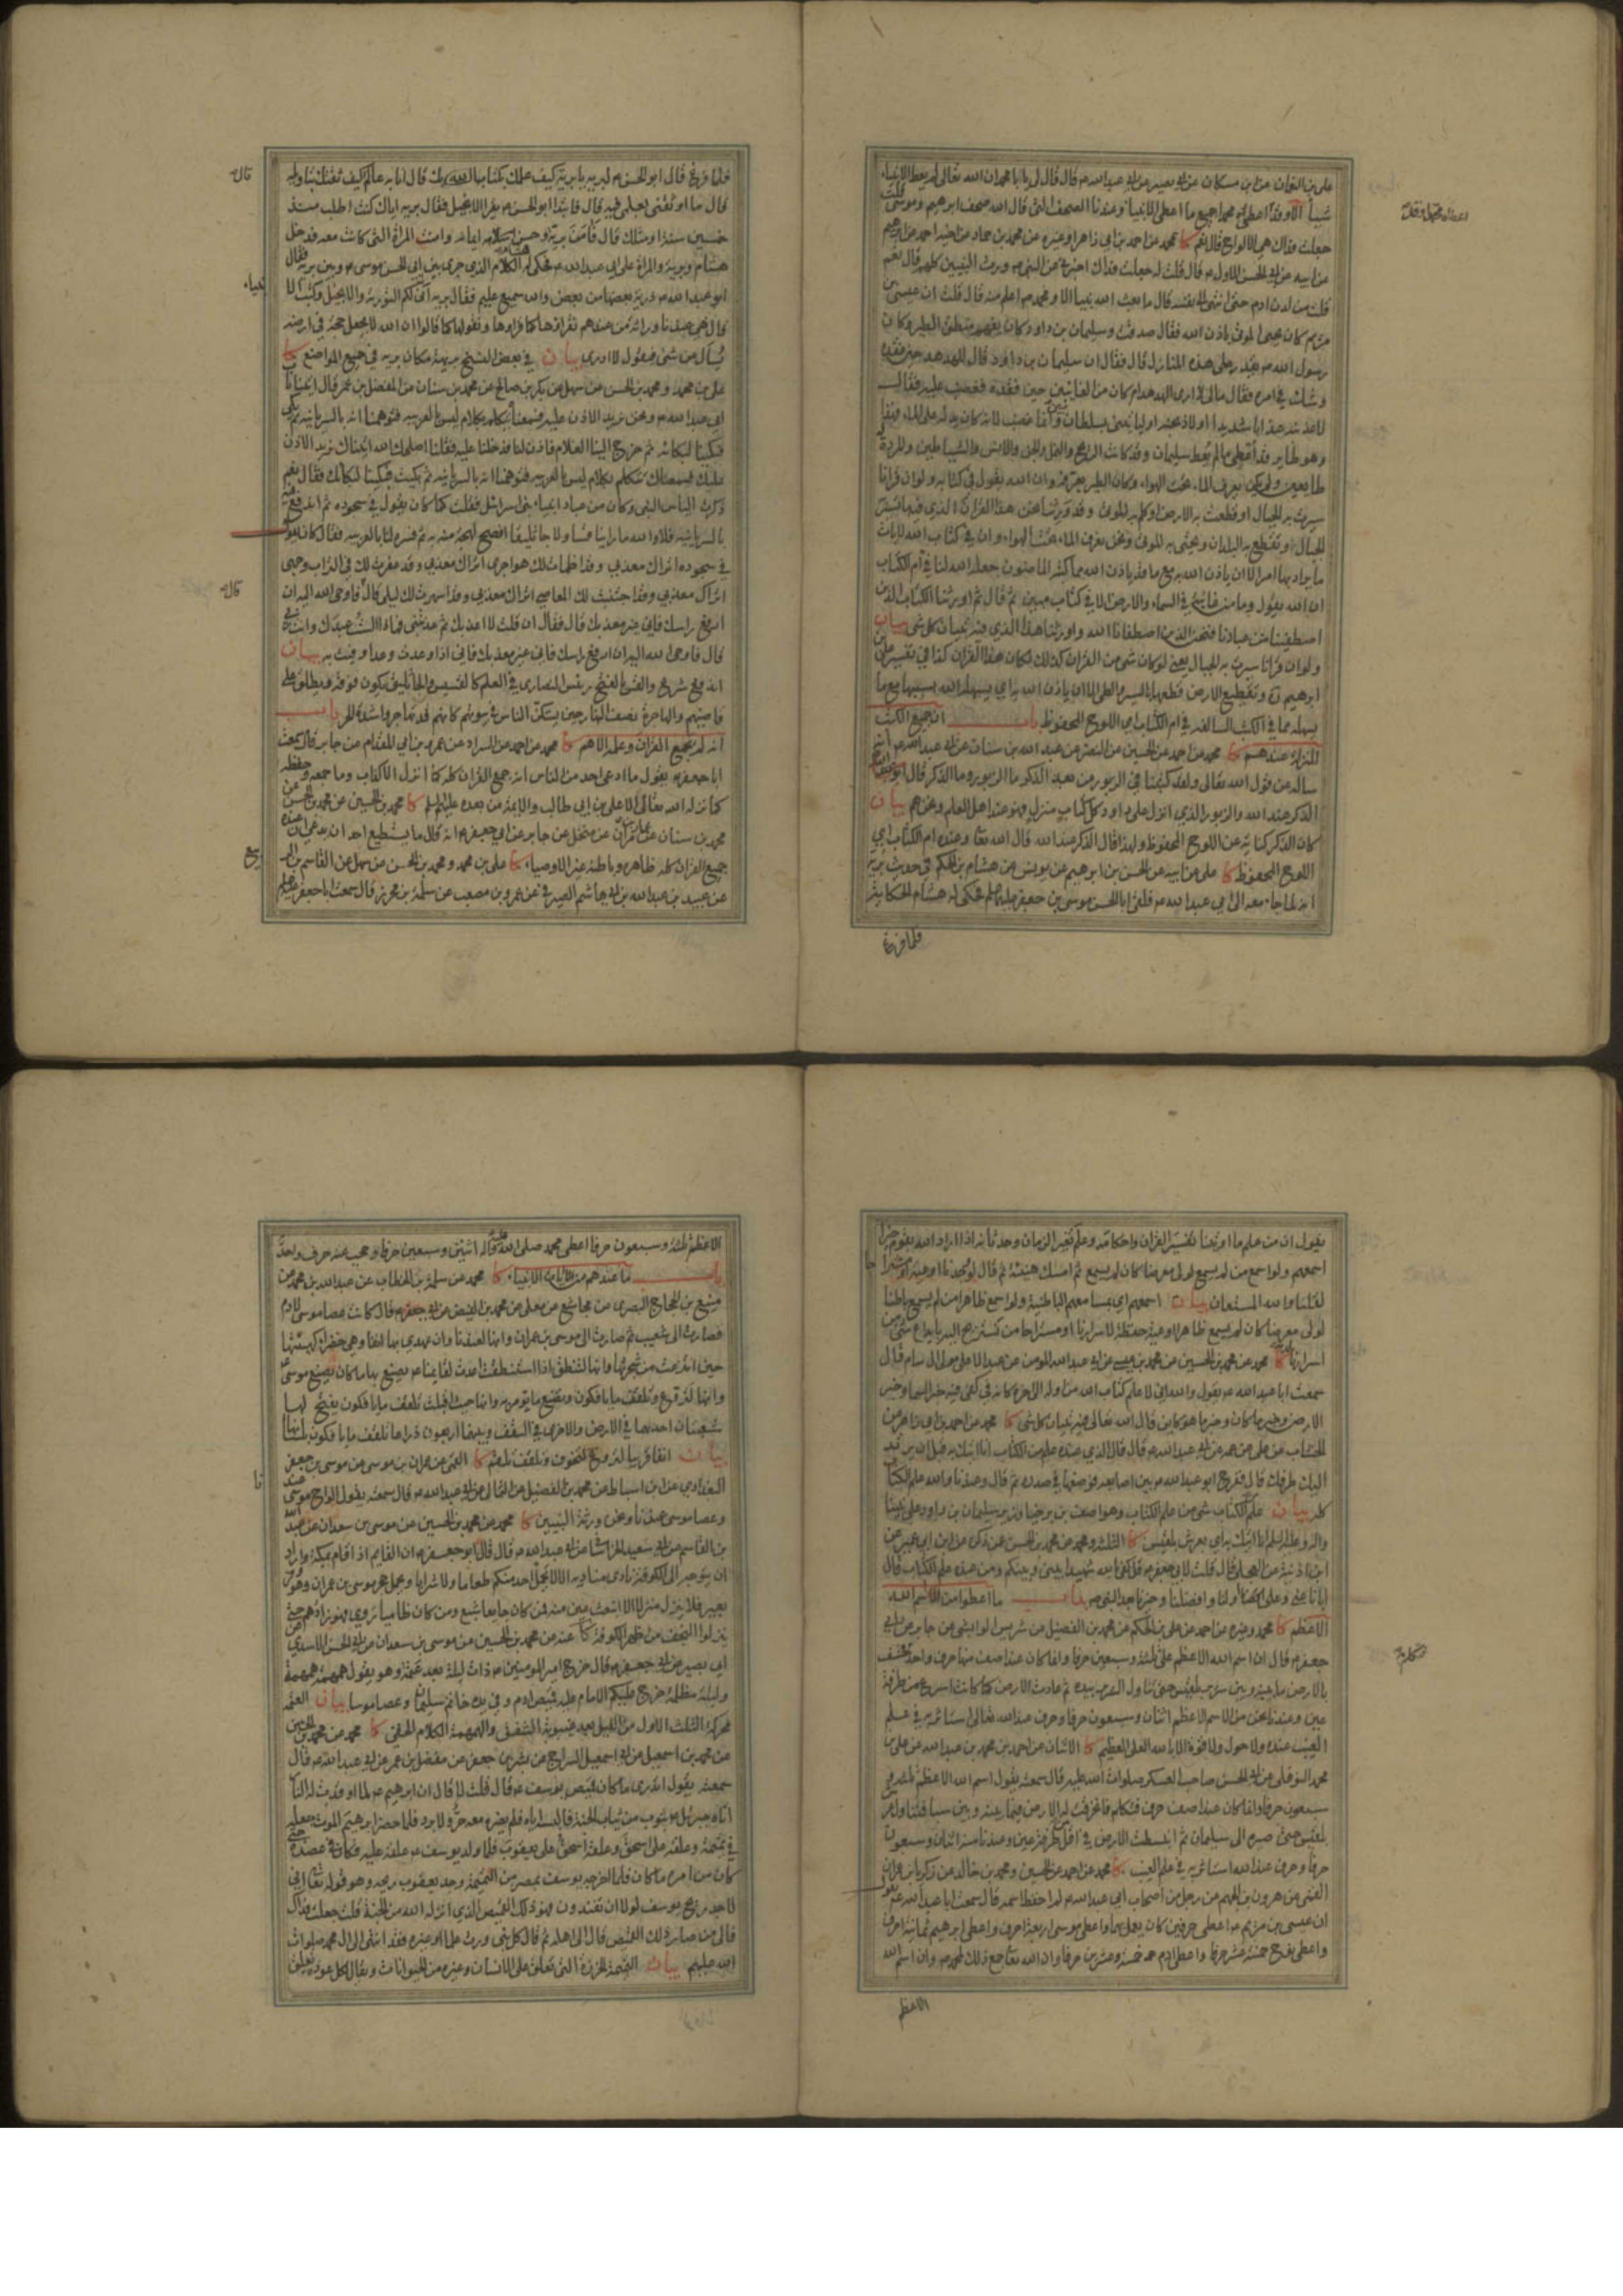 على بن النعمان عن ابن مسكان عن ابي بصير عن ابي عبدالله ع قال قال لي يا با محمد ان الله تعالى لم يعط الانبياء
شيئا الا وقد اعطى محمدا جميع ما اعطى الانبياء وعندنا الصحف التى قال الله صحف ابرهيم وموسى قلت
جعلت فداك هي الالواح قال نعم كا محمد عن احمد بن ابي زاهر او غيره عن محمد بن حماد عن اخيه احمد عن ابرهيم
عن ابيه عن ابي الحسن الاول ع قال قلت له جعلت فداك اخبرني عن النبي ص ورث النبيين كلهم قال نعم
قلت من لدن ادم حتى انتهى الى نفسه قال ما بعث الله نبيا الا ومحمد ص اعلم منه قال قلت ان عيسى بن
مريم كان يحيى الموتى باذن الله فقال صدقت وسليمان بن داود كان يفهم منطق الطير وكان
رسول الله ص يقدر على هذه المنازل قال فقال ان سليمان بن داود قال للهدهد حين فقده
وشك في امره فقال مالي لا ارى الهدهد ام كان من الغائبين حين فقده فغضب عليه فقال
لاعذبنه عذابا شديدا او لاذبحنه او لياتيني بسلطان مبين وانما غضب لانه كان يدله على الماء فهذا
وهو طاير قد أعطي مالم يعط سليمان وقد كانت الريح والنمل والجن والانس والشياطين والمردة له
طايعين ولم يكن يعرف الماء تحت الهواء وكان الطير يعرفه وان الله يقول في كتابه ولو ان قرانا
سيرت به الجبال او قطعت به الارض او كلم به الموتى وقد ورثنا نحن هذا القران الذي فيه ما تسير به
الجبال وتقطع به البلدان ويحيى به الموتى ونحن نعرف الماء تحت الهواء وان في كتاب الله لايات
ما يراد بها امر الا ان ياذن الله به مع ما قد ياذن الله مما كتبه الماضون جعله الله لنا في ام الكتاب
ان الله يقول وما من غائبة في السماء والارض الا في كتاب مبين ثم قال ثم اورثنا الكتاب الذين
اصطفينا من عبادنا فنحن الذين اصطفانا الله واورثنا هذا الذي فيه تبيان كل شئ بيان
ولو ان قرانا سيرت به الجبال يعني لو كان شئ من القران كذلك لكان هذا القران كذا في تفسير على بن
ابرهيم
يسهله مما في الكتب السالفة في ام الكتاب اي اللوح المحفوظ باب ان جميع الكتب
المنزلة عندهم كا محمد عن احمد عن الحسين عن النضر عن عبد الله بن سنان عن ابي عبدالله ع انه
ساله عن قول الله تعالى ولقد كتبنا في الزبور من بعد الذكر ما الزبور وما الذكر قال
الذكر عند الله والزبور الذي انزل على داود وكل كتاب منزل فهو عند اهل العلم ونحن هم بيان
كان الذكر كناية عن اللوح المحفوظ ولهذا قال الذكر عند الله قال الله تعا وعنده ام الكتاب اي
اللوح المحفوظ كا على عن ابيه عن الحسن بن ابرهيم عن يونس عن هشام بن الحكم في حديث بريه
انه لما جاء معه الى ابي عبدالله ع فلقي ابا الحسن موسى بن جعفر عليهما السلم فحكى له هشام الحكاية
فلما فرغ
فلما فرغ قال ابو الحسن ع لبريه يا بريه كيف علمك بكتابك قال انا به عالم كيف ثقتك بتاويله
قال ما اوثقنى بعلمي فيه قال فابتدا ابو الحسن ع يقرا الانجيل فقال بريه اياك كنت اطلب منذ
خمسين سنة او مثلك قال فآمن بريه وحسن ايمانه وامنت المراة التى كانت معه فدخل
هشام وبريه والمراة على ابي عبدالله ع فحكى له هشام الكلام الذي جرى بين ابي الحسن موسى ع وبين بريه فقال
ابو عبدالله ع ذرية بعضها من بعض والله سميع عليم فقال بريه أنى لكم التورية والانجيل وكتب الانبياء
قال هي عندنا وراثة من عندهم نقراها كما قراوها ونقولها كما قالوا ان الله لا يجعل حجة في ارضه
يسأل عن شئ فيقول لا ادرى بيان في بعض النسخ بريهة مكان بريه في جميع المواضع كا
على بن محمد ومحمد بن الحسن عن سهل عن بكر بن صالح عن محمد بن سنان عن المفضل بن عمر قال اتينا باب
ابي عبدالله ع ونحن نريد الاذن عليه فسمعناه يتكلم بكلام ليس بالعربيه فتوهمنا انه بالسريانيه ثم بكى
فبكينا لبكائه ثم خرج الينا الغلام فاذن لنا فدخلنا عليه فقلنا اصلحك الله اتيناك نريد الاذن
عليك فسمعناك تتكلم بكلام ليس بالعربيه فتوهمنا انه بالسريانيه ثم بكيت فبكينا لبكائك فقال نعم
ذكرت الياس النبى وكان من عباد انبياء بنى اسرائيل فقلت كما كان يقول في سجوده ثم اندفع فيه
بالسريانيه فلا والله ما راينا قسا ولا جاثليقا افصح لهجة منه به ثم فسره لنا بالعربيه فقال كان يقول
في سجوده اتراك معذبي وقد اظمات لك هواجرى اتراك معذبي وقد عفرت لك في التراب وجهى
اتراك معذبي وقد اجتنبت لك المعاصي اتراك معذبي وقد اسهرت لك ليلى قال فاوحى الله اليه ان
ارفع راسك فاني غير معذبك قال فقال ان قلت لا اعذبك ثم عذبتنى فماذا الست عبدك وانت ربي
قال فاوحى الله اليه ان ارفع راسك فاني غير معذبك فاني اذا وعدت وعدا وفيت به بيان
اندفع شرع والقس بالفتح رئيس النصارى في العلم كالقسيس والجاثليق يكون فوقه ويطلق على
قاضيهم والهاجرة نصف النهار حين يستكن الناس في بيوتهم كانهم قد تهاجروا شدة للحر باب
انه لم يجمع القران وعلمه الا هم كا محمد عن احمد عن السراد عن عمرو بن ابي المقدام عن جابر قال سمعت
ابا جعفر ع يقول ما ادعى احد من الناس انه جمع القران كله كما انزل الا كذاب وما جمعه وحفظه
كما نزله الله تعالى الا على بن ابي طالب والايمة من بعده عليهم السلم كا محمد بن الحسين عن محمد بن الحسن عن
محمد بن سنان عن عمار بن مروان عن منخل عن جابر عن ابي جعفر ع انه قال ما يستطيع احد ان يدعي ان عنده
جميع القران كله ظاهره وباطنه غير الاوصياء كا على بن محمد ومحمد بن الحسن عن سهل عن القاسم بن الربيع
عن عبيد بن عبدالله بن ابي هاشم الصيرفي عن عمرو بن مصعب عن سلمة بن محرز قال سمعت ابا جعفر ع
يقول ان من علم ما اوتينا تفسير القران واحكامه وعلم تغير الزمان وحدثانه اذا اراد الله بقوم خيرا
اسمعهم ولو اسمع من لم يسمع لولى معرضا كان لم يسمع ثم امسك هنيئة ثم قال لو وجدنا اوعية او مستراحا
لقلنا والله المستعان بيان
لولى معرضا كان لم يسمع ظاهرا اوعية حفظة لاسرارنا او مستراحا من
اسرارنا كا محمد عن محمد بن الحسين عن محمد بن عيسى عن ابي عبدالله المومن عن عبد الاعلى مولى ال سام قال
سمعت ابا عبدالله ع يقول والله اني لاعلم كتاب الله من اوله الى اخره كانه في كفى فيه خبر السما وخبر
الارض وخبر ما كان وخبر ما هو كاين قال الله تعالى فيه تبيان كل شئ كا محمد عن احمد بن ابي زاهر عن
الخشاب عن على عن عمه عن ابي عبدالله ع قال قال الذي عنده علم من الكتاب انا اتيك به قبل ان يرتد
اليك طرفك قال ففرج ابو عبدالله ع بين اصابعه فوضعها في صدره ثم قال وعندنا والله علم الكتاب
كله بيان علم الكتاب شئ من علم الكتاب وهو اصف بن برخيا وزير سليمان بن داود على نبينا
واله وعليه السلم انا اتيك به اي بعرش بلقيس كا الثلثه ومحمد عن محمد بن الحسن عن ذكره عن ابن ابي عمير عن
ابن اذينة عن العجلى قال قلت لابي جعفر ع قل كفى بالله شهيدا بيني وبينكم ومن عنده علم الكتاب قال
ايانا عنى وعلي اولنا وافضلنا وخيرنا بعد النبى ص باب ما اعطوا من الاسم الله
الاعظم كا محمد وغيره عن احمد عن على بن الحكم عن محمد بن الفضيل عن شريس الوابشى عن جابر عن ابي
جعفر ع قال ان اسم الله الاعظم على ثلثة وسبعين حرفا وانما كان عند اصف منها حرف واحد فخسف
بالارض ما بينه وبين سرير بلقيس حتى تناول السرير بيده ثم عادت الارض كما كانت اسرع من طرفة
عين وعندنا نحن من الاسم الاعظم اثنان وسبعون حرفا وحرف عند الله تعالى استاثر به في علم
الغيب عنده ولا حول ولا قوة الا بالله العلى العظيم كا الاثنان عن احمد بن محمد بن عبدالله عن على بن
محمد النوفلى عن ابي الحسن صاحب العسكر صلوات الله عليه قال سمعته يقول اسم الله الاعظم ثلثة و
سبعون حرفا وانما كان عند اصف حرف فتكلم به فانخرقت له الارض فيما بينه وبين سبا فتناول عرش
بلقيس حتى صيره الى سليمان ثم انبسطت الارض في اقل من طرفة عين وعندنا منه اثنان وسبعون
حرفا وحرف عند الله استاثر به في علم الغيب كا محمد عن احمد عن الحسين ومحمد بن خالد عن زكريا بن عمران
القمى عن هرون بن الجهم عن رجل من اصحاب ابي عبدالله ع لم احفظ اسمه قال سمعت ابا عبدالله ع يقول
ان عيسى بن مريم ع اعطى حرفين كان يعمل بهما واعطى موسى اربعة احرف واعطى ابرهيم ثمانية احرف
واعطى نوح خمسة عشر حرفا واعطى ادم خمسة وعشرين حرفا وان الله تعا جمع ذلك لمحمد ص وان اسم الله
الاعظم
الاعظم ثلثة وسبعون حرفا اعطى محمد صلى الله عليه واله اثنين وسبعين حرفا وحجب عنه حرف واحد
باب ما عندهم من ايات الانبياء كا محمد عن سلمة بن الخطاب عن عبدالله بن محمد عن
منيع بن الحجاج البصرى عن مجاشع عن معلى عن محمد بن الفيض عن ابي جعفر ع قال كانت عصا موسى لادم
فصارت الى شعيب ثم صارت الى موسى بن عمران وانها لعندنا وان عهدي بها انفا وهي خضراء كهيئتها
حين انتزعت من شجرتها وانها لتنطق اذا استنطقت اعدت لقايمنا ع يصنع بها ما كان يصنع موسى ع
وانها لتروع وتلقف ما يافكون وتصنع ما تومر به وانها حيث اقبلت تلقف ما يافكون يفتح لها
شعبتان احديهما في الارض والاخرى في السقف وبينهما اربعون ذراعا تلقف ما يافكون بلسانها
بيان انفا قريبا لتروع لتخوف وتلقف تلقم كا القمى عن عمران بن موسى عن موسى بن جعفر
البغدادي عن ابن اسباط عن محمد بن الفضيل عن الثمالى عن ابي عبدالله ع قال سمعته يقول الواح موسى
وعصا موسى عندنا ونحن ورثة النبيين كا محمد عن محمد بن الحسين عن موسى بن سعدان عن عبد الله
بن القاسم عن ابي سعيد الخراسانى عن ابي عبدالله ع قال قال ابو جعفر ع ان القايم اذا قام بمكة واراد
ان يتوجه الى الكوفة نادى مناديه الا لا يحمل احد منكم طعاما ولا شرابا ويحمل حجر موسى بن عمران وهو وقر
بعير فلا ينزل منزلا الا انبعث عين منه فمن كان جايعا شبع ومن كان ظاميا روى فهو زادهم حتى
ينزلوا النجف من ظهر الكوفة كا عنه عن محمد بن الحسين عن موسى بن سعدان عن ابي الحسن الاسدي عن
ابي بصير عن ابي جعفر ع قال خرج امير المومنين ع ذات ليلة بعد عتمة وهو يقول همهمة همهمة
وليلة مظلمة خرج عليكم الامام عليه قميص ادم وفي يده خاتم سليمان وعصا موسا بيان العتمه
محركة الثلث الاول من الليل بعد غيبوبة الشفق والهمهمة الكلام الخفى كا محمد عن محمد بن الحسين
عن محمد بن اسمعيل عن ابي اسمعيل السراج عن بشر بن جعفر عن مفضل بن عمر عن ابي عبدالله ع قال
سمعته يقول اتدرى ما كان قميص يوسف ع قال قلت لا قال ان ابرهيم ع لما اوقدت له النار
اتاه جبرئيل ع بثوب من ثياب الجنة فالبسه اياه فلم يضره معه حر ولا برد فلما حضر ابرهيم الموت جعله
في تميمة وعلقه على اسحق وعلقه اسحق على يعقوب فلما ولد يوسف ع علقه عليه فكان في عضده حتى
كان من امره ما كان فلما اخرجه يوسف بمصر من التميمة وجد يعقوب ريحه وهو قوله تعا اني
لاجد ريح يوسف لولا ان تفندون فهو ذلك القميص الذي انزله الله من الجنة قلت جعلت فداك
فالى من صار ذلك القميص قال الى اهله ثم قال كل نبى ورث علما او غيره فقد انتهى الى ال محمد صلوات
الله عليهم بيان التميمة الخرزة التى تعلق على الانسان وغيره من الحيوانات ويقال لكل عوذة تعلق